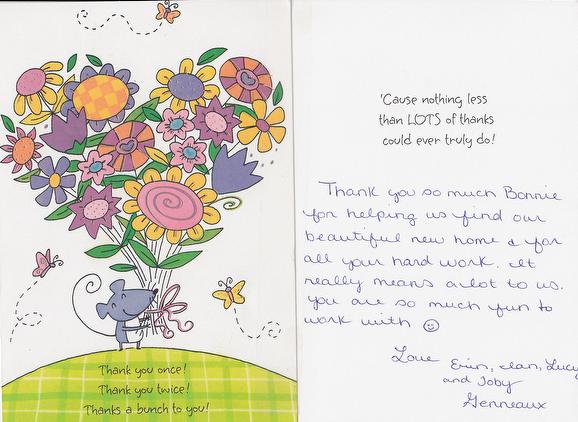 Thank you once!
Thank you twice!
Thanks a bunch to you!
'Cause nothing less
than LOTS of thanks
could ever truly do!
Thank you so much Bonnie
for helping us find our
beautiful new home & for
all your hard work. It
really means a lot to us.
You are so much fun to
work with
Love Erin, Ian, Lucy
and Joby
Genneaux